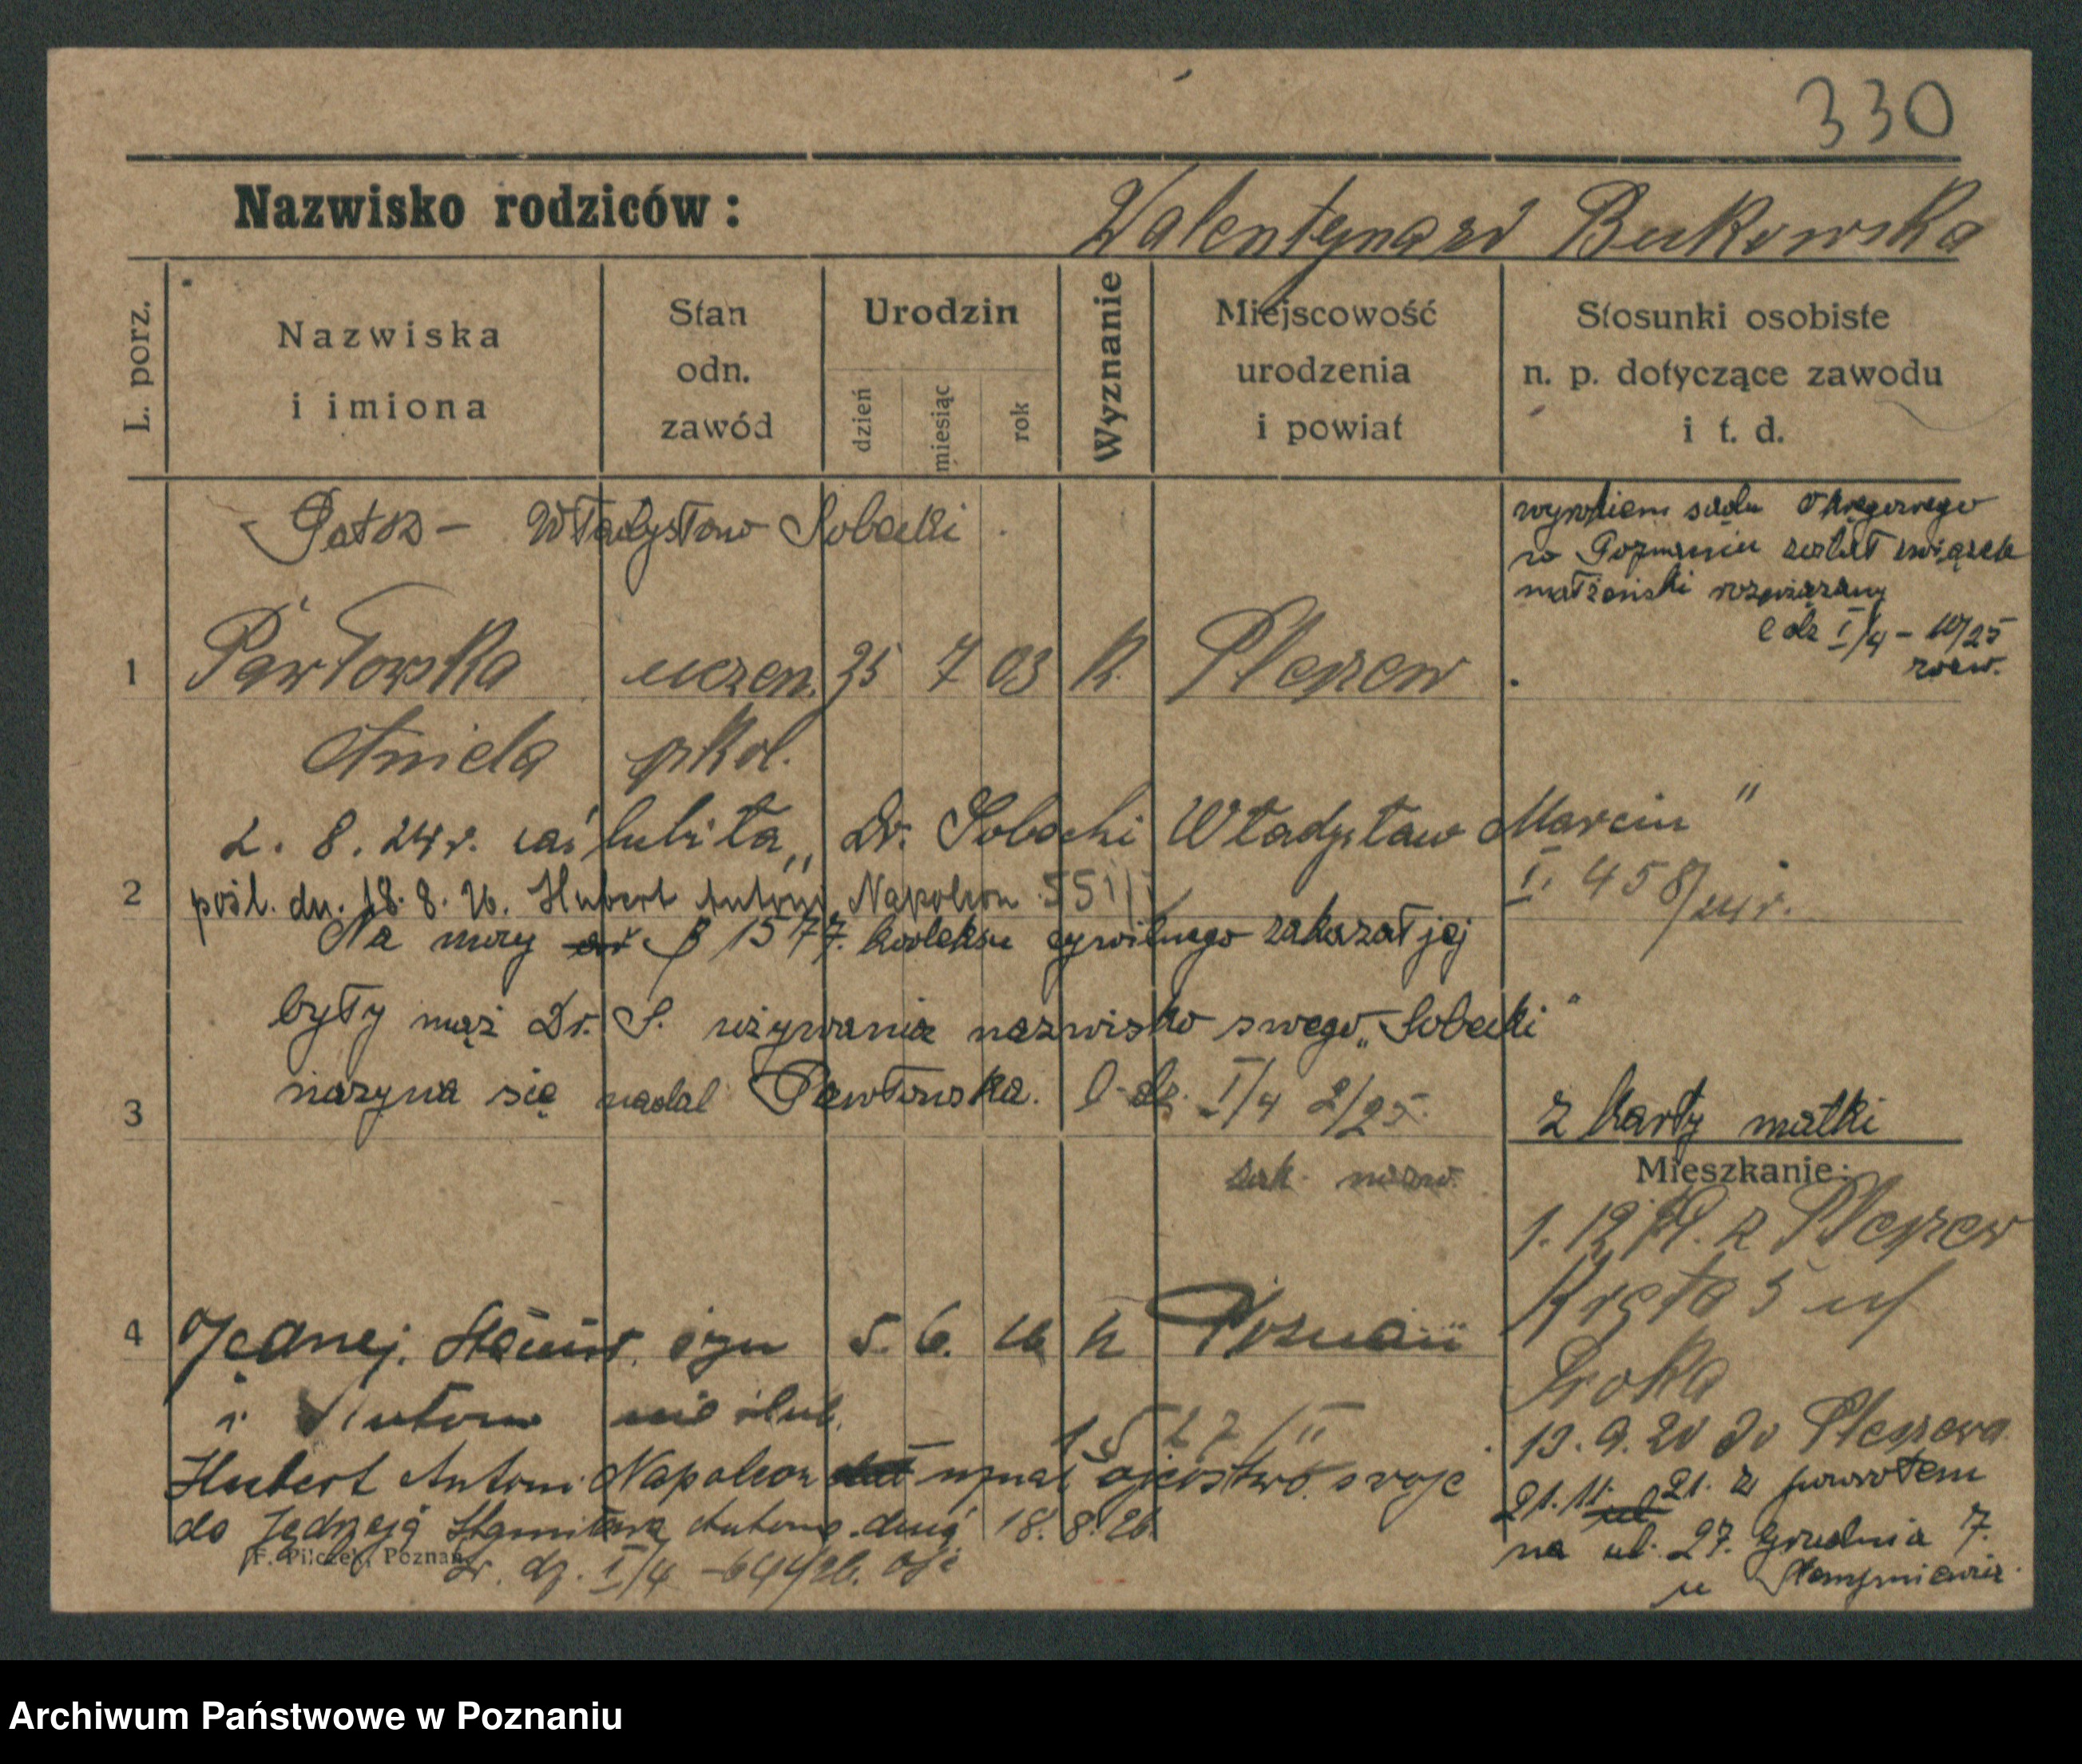 330
Nazwisko rodziców: Walentyna zd Bukowska
L. porz.
Nazwiska i imiona
Stan odn. zawód
Urodzin
dzień miesiąc rok
Wyznanie
Miejscowość urodzenia i powiat
Stosunki osobiste n. p. dotyczące zawodu i t. d.
Patrz - Władysław Sobecki
wyrokiem sądu Okręgowego
w Poznaniu został związek
małżeński rozwiązany
l dz I/4 - 10/25
rozw.
1 Pawłowska uczen. 25 7 03 k. Pleszew
Aniela szkol.
2. 8. 24 r. zaślubiła „Dr. Sobecki Władysław Marcin"
I. 458/24 r.
2 pośl. dn. 18. 8. 26. Hubert Antoni Napoleon
Na mocy § 1577. kodeksu cywilnego zakazał jej
były mąż Dr. S. używania nazwisko swego „Sobecki"
3 nazywa się nadal Pawłowska. l. dz. I/4 2/25.
zak. nazw.
z karty matki
Mieszkanie:
1. 12 19. z Pleszew
Kręta 5 u
13. 9. 20 do Pleszewa
21. 11. 21. z powrotem
na ul. 27. Grudnia 7.
u
4 Jędrzej. Stanisł. syn 5. 6. 26 k Poznań
i Antoni nieślub.
1527/II
Hubert Antoni Napoleon uznał ojcostwo swoje
do Jędrzeja Stanisława Antoniego dnia 18. 8. 26.
F. Pilczek, Poznań
Lr. dz. I/4 - 644/26.
Archiwum Państwowe w Poznaniu